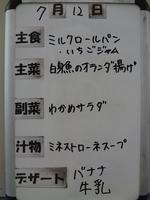 7月12日
主食 ミルクロールパン
・いちごジャム
主菜 白身魚のオランダ揚げ
副菜 わかめサラダ
汁物 ミネストローネスープ
デザート バナナ
牛乳